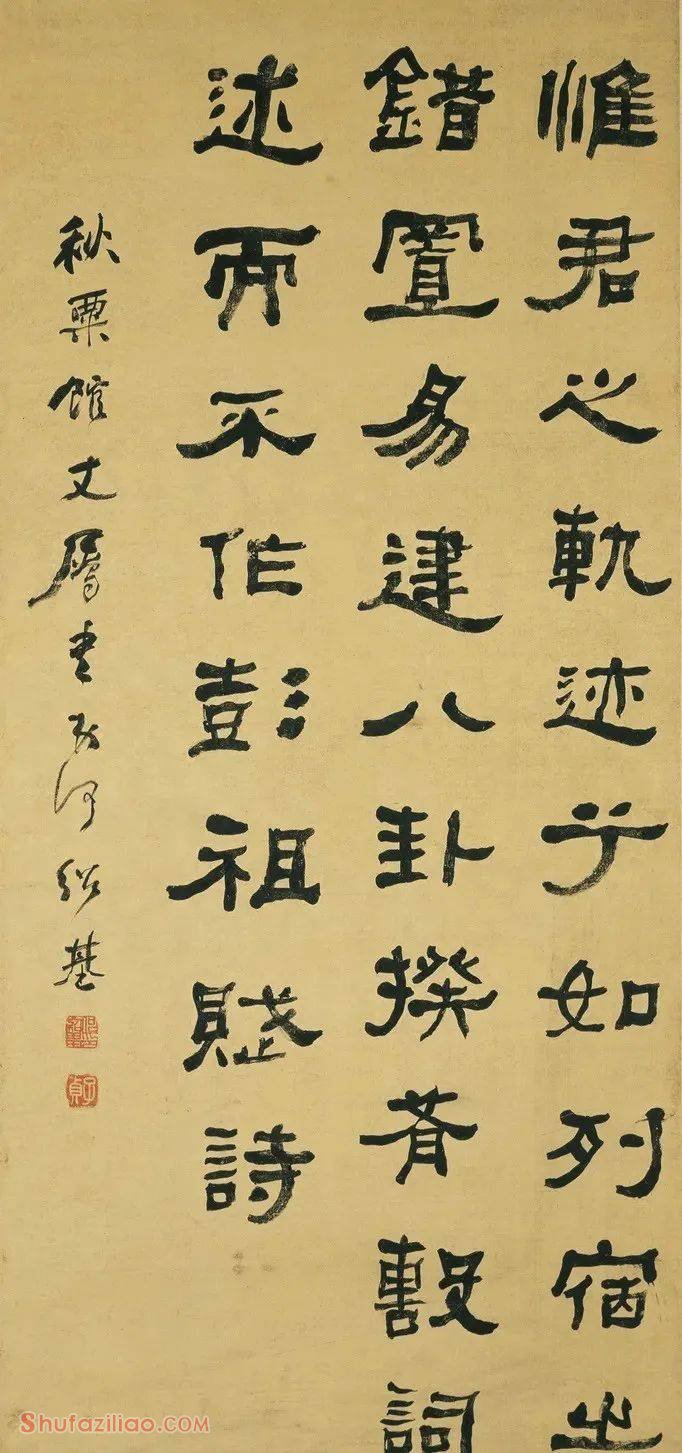 惟君之軌迹兮如列宿之
錯置易建八卦揆肴毄詞
述而不作彭祖賦詩
秋粟館丈屬書弟何紹基
子貞
Shufaziliao.COM